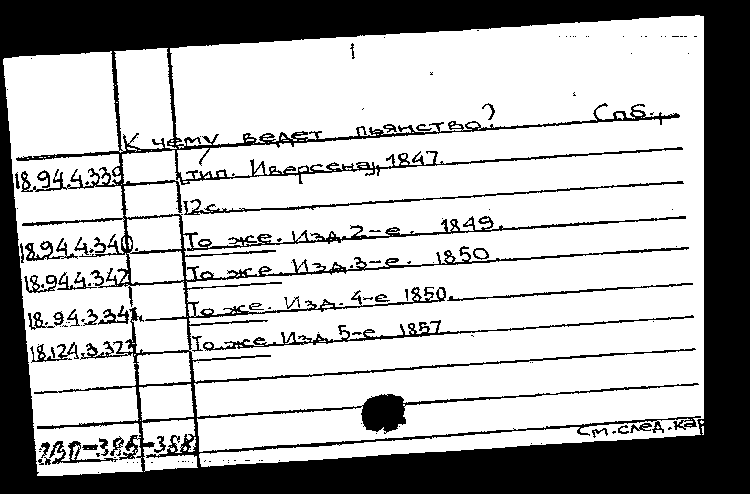 1
К чему ведет пьянство? Спб.,
18.94.4.339. тип. Иверсена, 1847.
12с.
18.94.4.340. То же. Изд. 2-е. 1849.
18.94.4.342. То же. Изд. 3-е. 1850.
18.94.3.341. То же. Изд. 4-е 1850.
18.124.3.323. То же. Изд. 5-е. 1857.
-385-388
См. след. кар